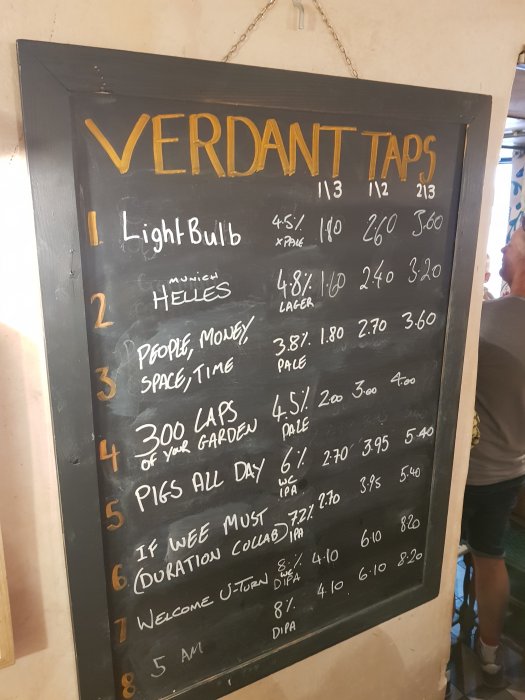 VERDANT TAPS
1\3 1\2 2\3
1 LightBulb 4.5% XPALE 1.80 2.60 3.60
2 MUNICH HELLES 4.8% LAGER 1.60 2.40 3.20
3 PEOPLE, MONEY, SPACE, TIME 3.8% PALE 1.80 2.70 3.60
4 300 LAPS OF YOUR GARDEN 4.5% PALE 2.00 3.00 4.00
5 PIGS ALL DAY 6% WC IPA 2.70 3.95 5.40
6 IF WEE MUST (DURATION COLLAB) 7.2% IPA 2.70 3.95 5.40
7 WELCOME U-TURN 8% WC DIPA 4.10 6.10 8.20
8 5 AM 8% DIPA 4.10 6.10 8.20